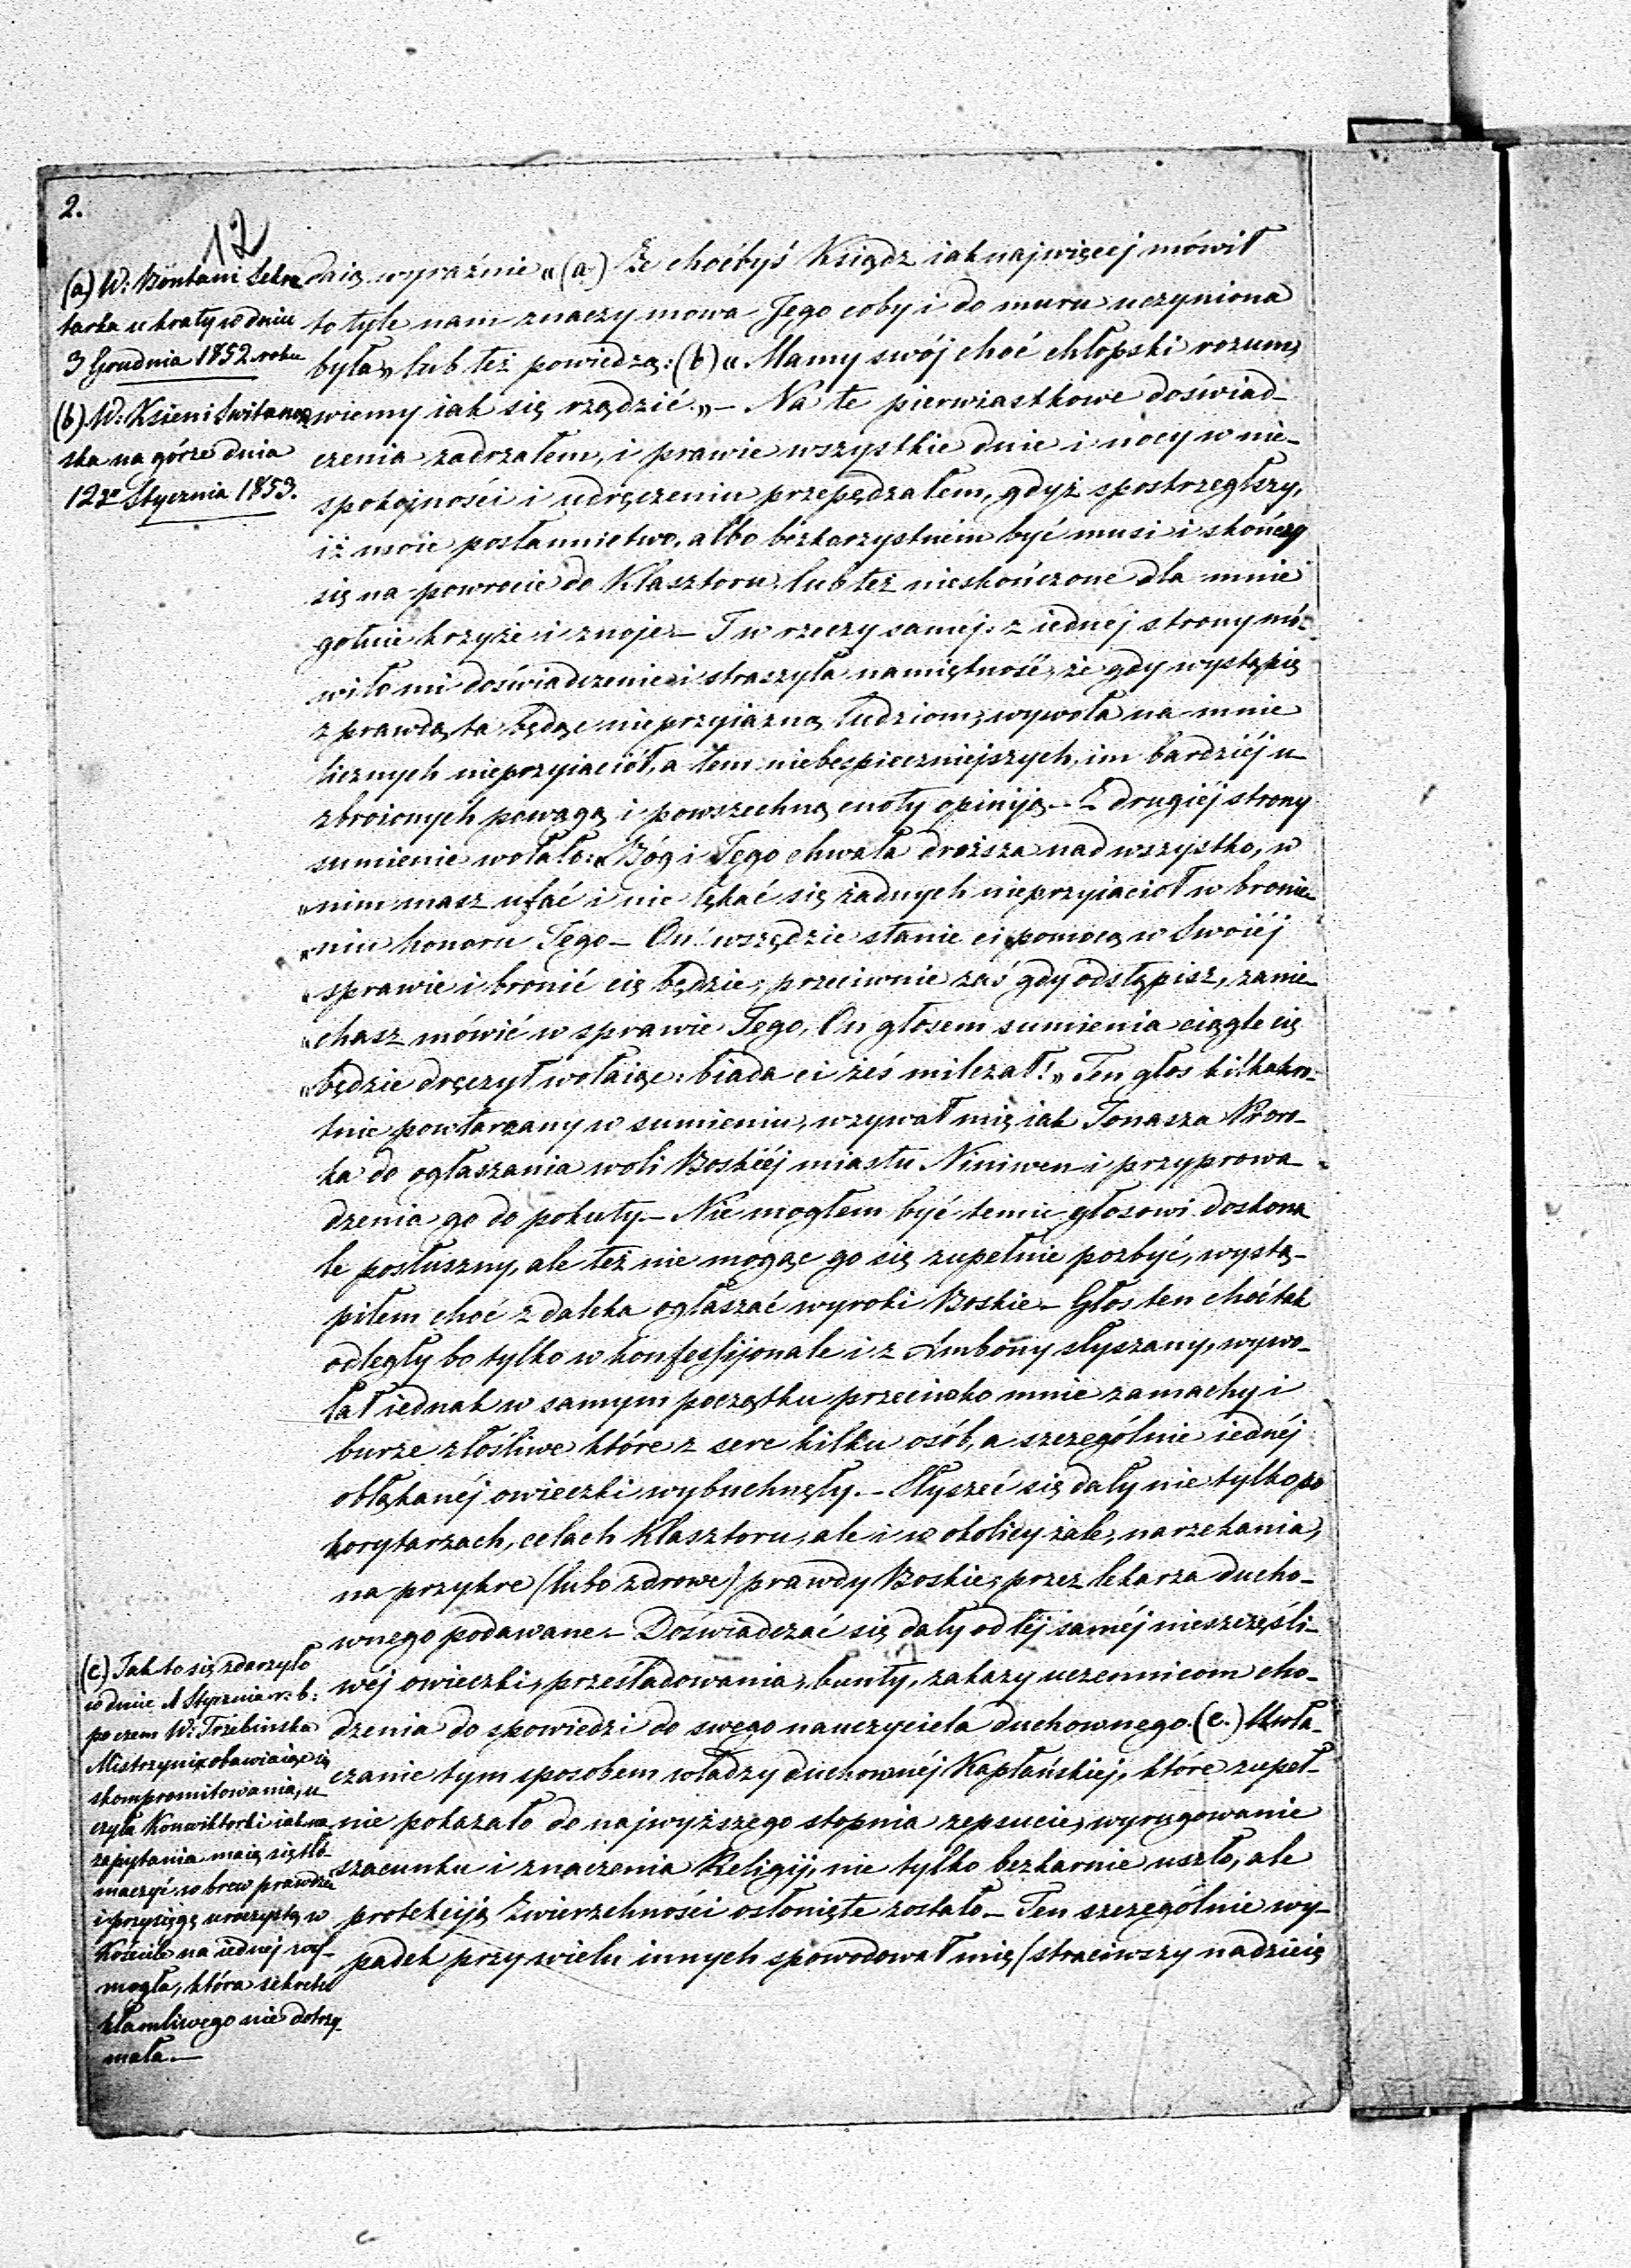 2.
12
(a) W: Bontani Sekre
tarka u kraty w dniu
3 Grudnia 1852 roku
(b) W: Xieni Świtanow
ska na górze dnia
12go Stycznia 1853.
daią wyraźnie „(a) Że choćbyś Ksiądz iak najwięcej mówił
to tyle nam znaczy mowa Jego coby i do muru uczyniona
była„ lub też powiedzą: (b) „Mamy swój choć chłopski rozum,
wiemy iak się rządzić.„ — Na te pierwiastkowe doświad-
czenia zadrżałem, i prawie wszystkie dnie i nocy w nie-
spokojności i udręczeniu przepędzałem, gdyż spostrzegłszy,
iż moie posłannictwo, albo bezkorzystnem być musi i skończy
się na powrocie do Klasztoru, lub też nieskończone dla mnie
gotuie krzyże i znoje — I w rzeczy saméj: z iednéj strony mó-
wiło mi doświadczenie i straszyła namiętność, że gdy wystąpię
z prawdą, ta będąc nieprzyiazną ludziom, wywoła na mnie
licznych nieprzyiaciół, a tem niebezpieczniejszych, im bardziéj u-
zbroionych powagą i powszechną cnoty opiniją. — Z drugiéj strony
sumienie wołało: „Bóg i Jego chwała droższa nad wszystko, w
„nim masz ufać i nie lękać się żadnych nieprzyiaciół w bronie-
„niu honoru Jego — On wszędzie stanie ci pomocą w Swoiéj
„sprawie i bronić cię będzie; przeciwnie zaś gdy odstąpisz, zanie-
„chasz mówić w sprawie Jego, On głosem sumienia ciągle cię
„będzie dręczył wołaiąc: biada ci żeś milczał!„ Ten głos kilkakro-
tnie powtarzany w sumieniu, wzywał mię iak Jonasza Proro-
ka do ogłaszania woli Boskiéj miastu Niniwen i przyprowa-
dzenia go do pokuty. — Nie mogłem być temu głosowi doskona
le posłuszny, ale też nie mogąc go się zupełnie pozbyć, wystą-
piłem choć z daleka ogłaszać wyroki Boskie — Głos ten choć tak
odległy bo tylko w konfessijonale i z Ambony słyszany, wywo-
łał iednak w samym początku przeciwko mnie zamachy i
burze złośliwe które z serc kilku osób, a szczególnie iednéj
obłąkanéj owieczki wybuchnęły. — Słyszeć się dały nie tylko po
korytarzach, celach Klasztoru, ale i w okolicy żale, narzekania,
na przykre (lubo zdrowe) prawdy Boskie, przez lekarza ducho-
wnego podawane — Doświadczać się dały od téj saméj nieszczęśli-
wéj owieczki, prześladowania, bunty, zakazy uczennicom cho-
dzenia do spowiedzi do swego nauczyciela duchownego. (c.) Uwła-
czanie tym sposobem władzy duchownéj Kapłańskiej, które zupeł-
nie pokazało do najwyższego stopnia zepsucie, wyrugowanie
szacunku i znaczenia Religij, nie tylko bezkarnie uszło, ale
protekciją Zwierzchności osłonięte zostało — Ten szczególnie wy-
padek przy wielu innych spowodował mię (straciwszy nadzieię
(c) Jak to się zdarzyło
w dniu 1 Stycznia r: b:
po czem W: Trzebinska
Mistrzyni obawiaiąc się
skompromitowania, u-
czyła Konwiktorki iak na
zapytania maią się tłó-
maczyć w brew prawdzie
i przysięgę uroczystą w
Kościele na iednéj wy-
mogła, która sekretu
kłamliwego nie dotrzy-
mała. —